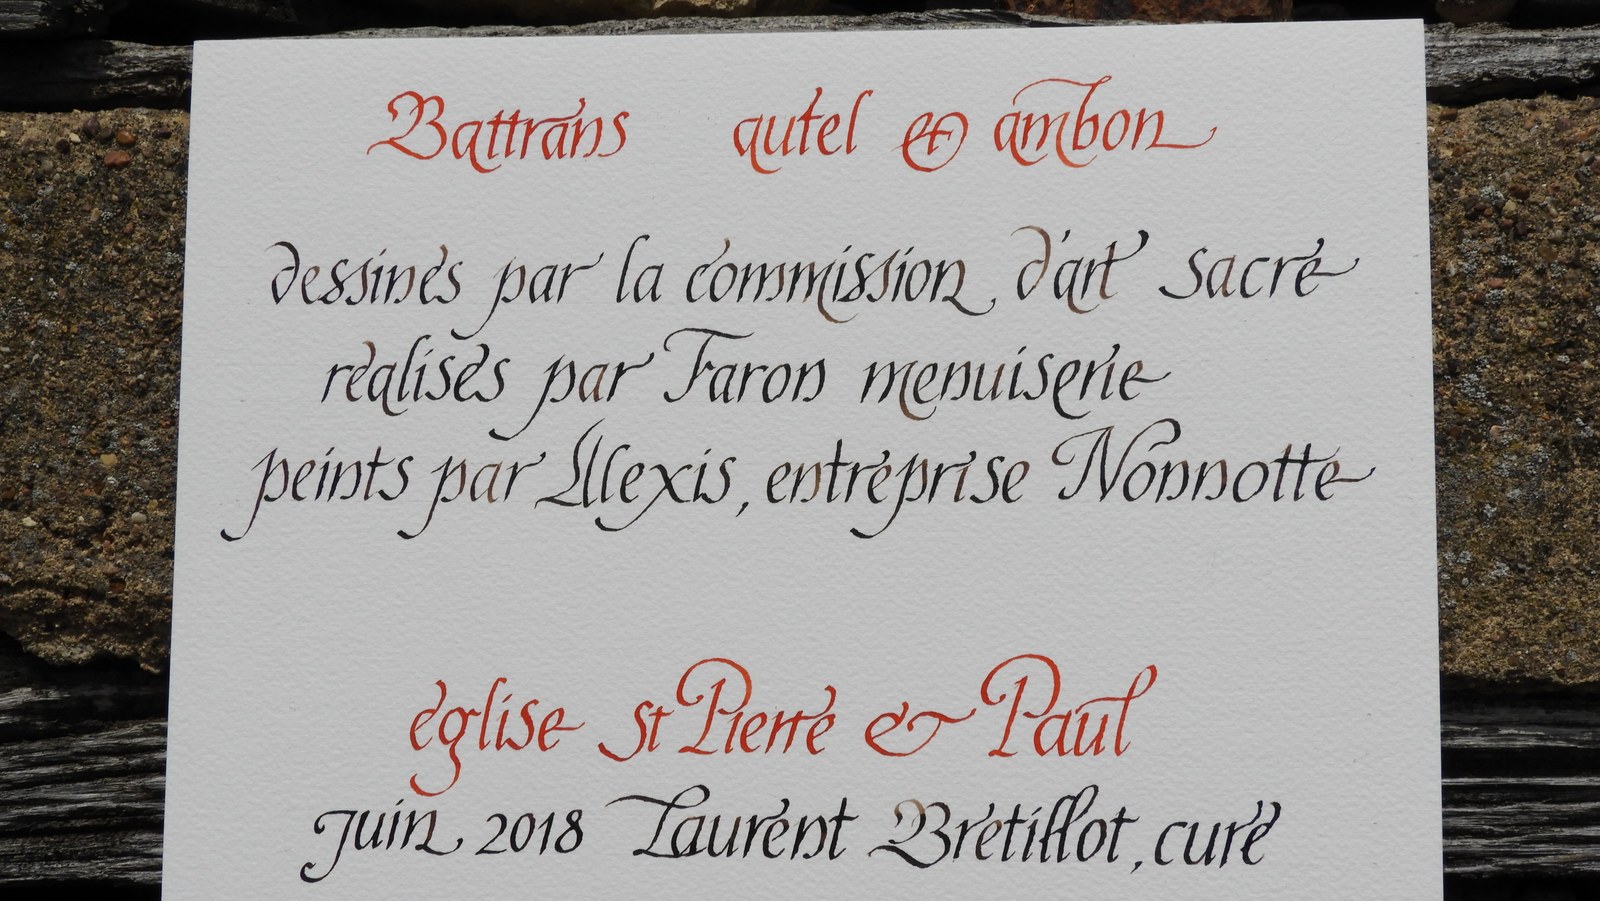 Battrans autel & ambon
dessinés par la commission d'art sacré
réalisés par Faron menuiserie
peints par Alexis, entreprise Nonnotte
église st Pierre & Paul
juin 2018 Laurent Bretillot, curé